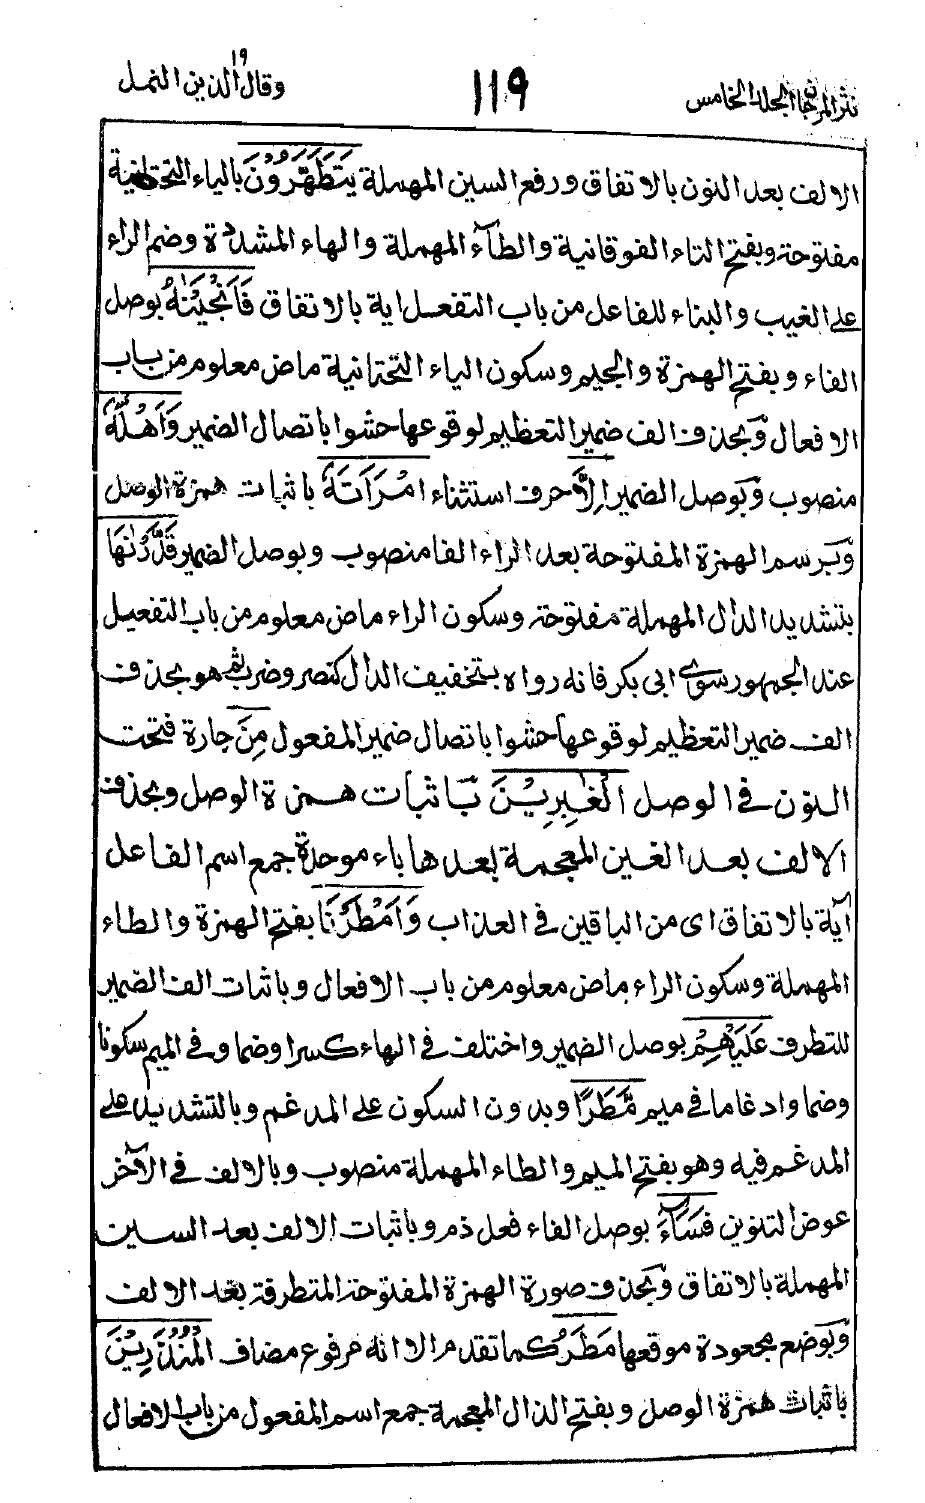 نثر المرجان الجلد الخامس
١١٩
وقال الذين ١٩ النمل
الالف بعد النون بالاتفاق ورفع السين المهملة يَتَطَهَّرُوْنَ بالياء التحتانية
مفتوحة وبفتح التاء الفوقانية والطآء المهملة والهاء المشددة وضم الراء
على الغيب والبناء للفاعل من باب التفعل اية بالاتفاق فَاَنْجَيْنٰهُ بوصل
الفاء وبفتح الهمزة والجيم وسكون الياء التحتانية ماض معلوم من باب
الافعال وبحذف الف ضمير التعظيم لوقوعها حشوا باتصال الضمير وَاَهْلَهٗٓ
منصوب وبوصل الضمير اِلَّا حرف استثناء امْرَاَتَهٗ باثبات همزة الوصل
وبرسم الهمزة المفتوحة بعد الراء الفا منصوب وبوصل الضمير قَدَّرْنٰهَا
بتشديد الدال المهملة مفتوحة وسكون الراء ماض معلوم من باب التفعيل
عند الجمهور سوى ابى بكر فانه رواه بتخفيف الدال كنصر وضرب ثم هو بحذف
الف ضمير التعظيم لوقوعها حشوا باتصال ضمير المفعول مِنَ جارة فتحت
النون فى الوصل الْغٰبِرِيْنَ باثبات همزة الوصل وبحذف
الالف بعد الغين المعجمة بعدها باء موحدة جمع اسم الفاعل
آية بالاتفاق اى من الباقين فى العذاب وَاَمْطَرْنَا بفتح الهمزة والطاء
المهملة وسكون الراء ماض معلوم من باب الافعال وباثبات الف الضمير
للتطرف عَلَيْهِمْ بوصل الضمير واختلف فى الهاء كسرا وضما وفى الميم سكونا
وضما وادغاما فى ميم مَّطَرًا وبدون السكون على المدغم وبالتشديد على
المدغم فيه وهو بفتح الميم والطاء المهملة منصوب وبالالف فى الآخر
عوض التنوين فَسَآءَ بوصل الفاء فعل ذم وباثبات الالف بعد السين
المهملة بالاتفاق وبحذف صورة الهمزة المفتوحة المتطرفة بعد الالف
وبوضع مجعودة موقعها مَطَرُ كما تقدم الا انه مرفوع مضاف الْمُنْذَرِيْنَ
باثبات همزة الوصل وبفتح الذال المعجمة جمع اسم المفعول من باب الافعال